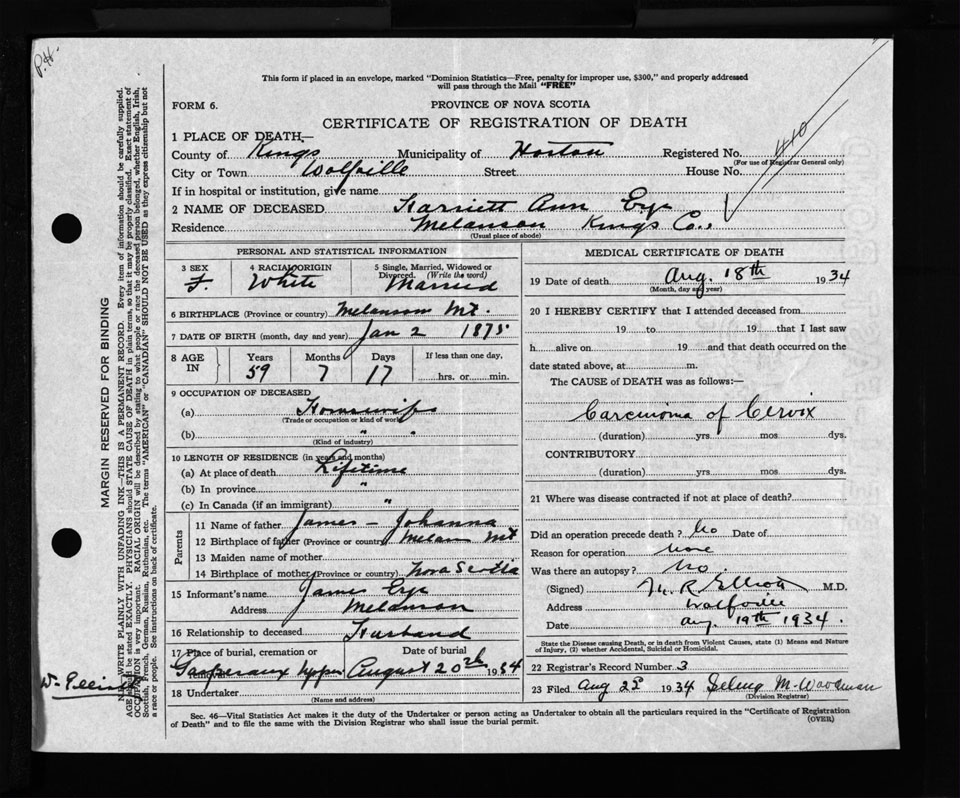 P.H.
This form if placed in an envelope, marked "Dominion Statistics—Free, penalty for improper use, $300," and properly addressed
will pass through the Mail "FREE"
FORM 6.
PROVINCE OF NOVA SCOTIA
CERTIFICATE OF REGISTRATION OF DEATH
1 PLACE OF DEATH—
County of Kings Municipality of Horton Registered No. 410
(For use of Registrar General only)
City or Town Wolfville Street House No.
If in hospital or institution, give name
2 NAME OF DECEASED Harriett Ann Eye
Residence Melanson Kings Co.
(Usual place of abode)
PERSONAL AND STATISTICAL INFORMATION
3 SEX F.
4 RACIAL ORIGIN White
5 Single, Married, Widowed or Divorced. (Write the word) Married
6 BIRTHPLACE (Province or country) Melanson Mt.
7 DATE OF BIRTH (month, day and year) Jan 2 1875
8 AGE IN Years 59 Months 7 Days 17 If less than one day, hrs. or min.
9 OCCUPATION OF DECEASED
(a) Housewife
(Trade or occupation or kind of work)
(b) " "
(Kind of industry)
10 LENGTH OF RESIDENCE (in years and months)
(a) At place of death Lifetime
(b) In province "
(c) In Canada (if an immigrant) "
Parents
11 Name of father James – Johanna
12 Birthplace of father (Province or country) Melan Mt
13 Maiden name of mother
14 Birthplace of mother (Province or country) Nova Scotia
15 Informant's name James Eye
Address Melanson
16 Relationship to deceased Husband
17 Place of burial, cremation or removal Date of burial
Gaspereaux Upper August 20th 1934
18 Undertaker
(Name and address)
MEDICAL CERTIFICATE OF DEATH
19 Date of death Aug. 18th 1934
(Month, day and year)
20 I HEREBY CERTIFY that I attended deceased from
19 to 19 that I last saw
h alive on 19 and that death occurred on the
date stated above, at m.
The CAUSE of DEATH was as follows:—
Carcinoma of Cervix
(duration) yrs. mos. dys.
CONTRIBUTORY
(duration) yrs. mos. dys.
21 Where was disease contracted if not at place of death?
Did an operation precede death? No Date of
Reason for operation None
Was there an autopsy? No.
(Signed) M. R. Elliott M.D.
Address Wolfville
Date Aug. 19th 1934.
State the Disease causing Death, or in death from Violent Causes, state (1) Means and Nature
of Injury, (2) whether Accidental, Suicidal or Homicidal.
22 Registrar's Record Number 3
23 Filed Aug 1934 M. Woodman
(Division Registrar)
Sec. 46—Vital Statistics Act makes it the duty of the Undertaker or person acting as Undertaker to obtain all the particulars required in the "Certificate of Registration
of Death" and to file the same with the Division Registrar who shall issue the burial permit.
(OVER)
MARGIN RESERVED FOR BINDING
WRITE PLAINLY WITH UNFADING INK—THIS IS A PERMANENT RECORD. Every item of information should be carefully supplied.
AGE should be stated EXACTLY. PHYSICIANS should STATE CAUSE OF DEATH in plain terms, so that it may be properly classified. Exact statement of
OCCUPATION is very important. RACIAL ORIGIN will be described by stating to what people or race the deceased person belonged, whether English, Irish,
Scottish, French, German, Russian, Ruthenian, etc. The terms "AMERICAN" or "CANADIAN" SHOULD NOT BE USED as they express citizenship but not
a race or people. See instructions on back of certificate.